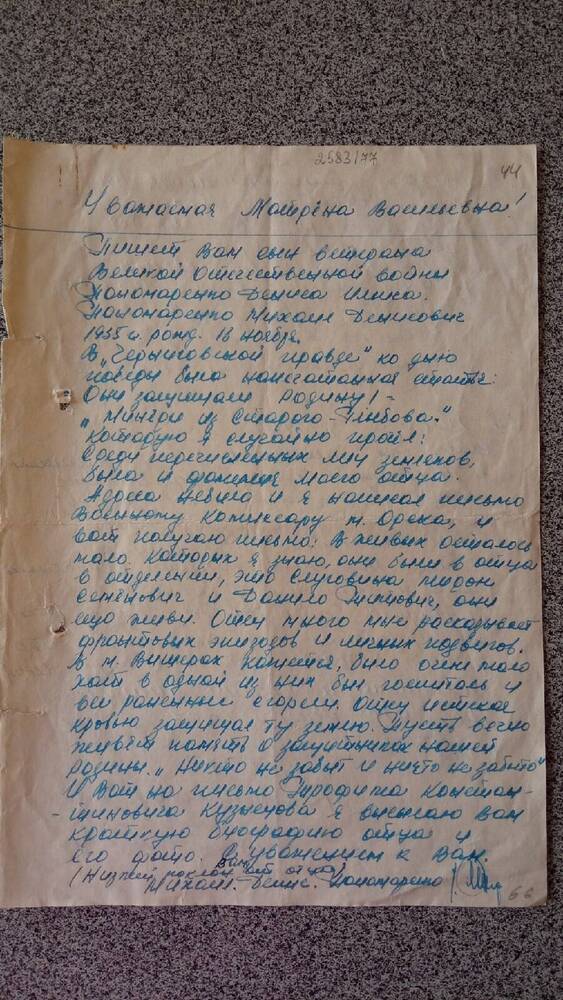 2583/77
44
Уважаемая Матрёна Васильевна!
Пишет Вам сын ветерана
Великой Отечественной войны
Пономаренко Дениса
Пономаренко Михаил Денисович
1955 г. рожд. 16 ноября.
В „Черниговской правде" ко дню
победы была напечатанная статья:
Они защищали Родину! –
„Минёры из Старого-Глыбова."
Которую я случайно прочёл:
Среди перечисленных земляков,
была и фамилия моего отца.
Адреса небыло и я написал письмо
Военному комиссару г. Орска, и
вот получаю письмо: В живых осталось
мало, которых я знаю, они были в отца
в отделении, это Слуговина Мирон
Семёнович и Данило они
ещо живы. Отец много мне расказывает
фронтовых эпизодов и личных подвигов.
В м. Вишерах кажется, было очень мало
хат в одной из них был госпиталь и
все раненные сгорели. Отец истекая
кровью защищал ту землю. Пусть вечно
живёт память о защитниках нашей
родины. „Никто не забыт и ничто не забыто"
И Вот на письмо Трофима Констан-
-тиновича Кузнецова я высылаю Вам
краткую биографию отца и
его фото. С уважением к Вам.
(Низкий поклон Вам от отца)
Михаил Денис. Пономаренко
66